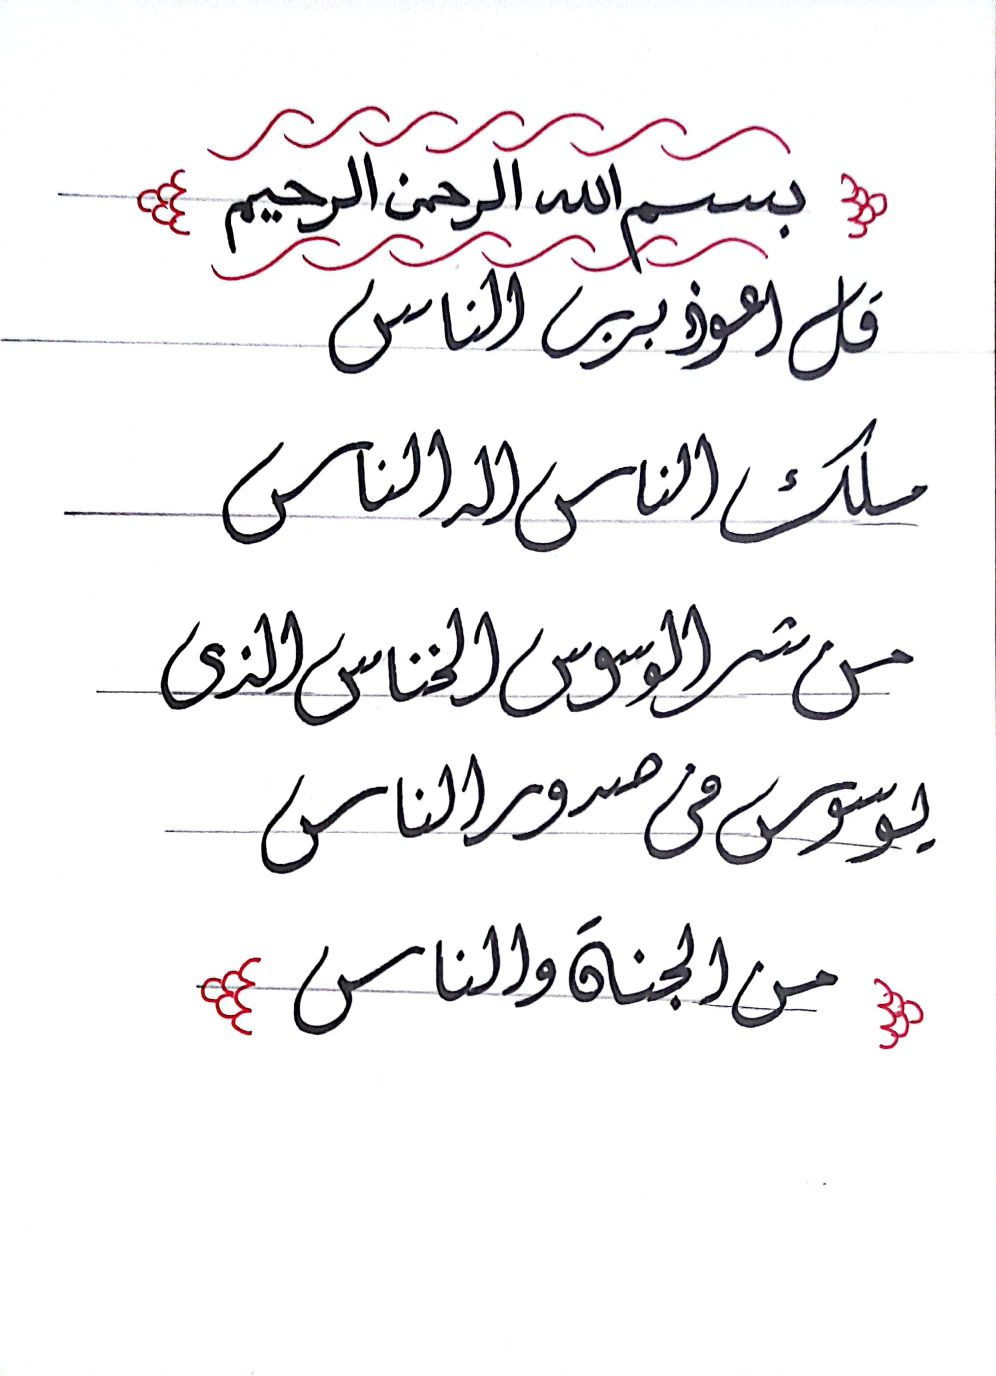 بسم الله الرحمن الرحيم
قل اعوذ برب الناس
ملك الناس اله الناس
من شر الوسوس الخناس الذى
يوسوس فى صدور الناس
من الجنة والناس